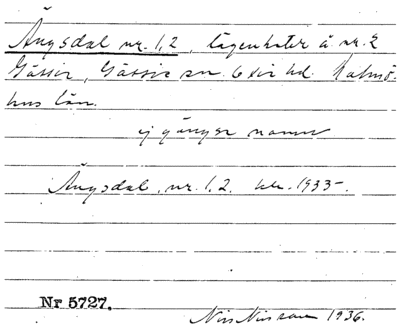 Ängsdal nr. 1, 2, lägenheter å nr. 2
Gässie, Gässie sn. Oxie hd. Malmö-
hus län.
ej gängse namn
Ängsdal, nr. 1, 2. 1933.
Nr 5727.
Nils Nilsson 1936.